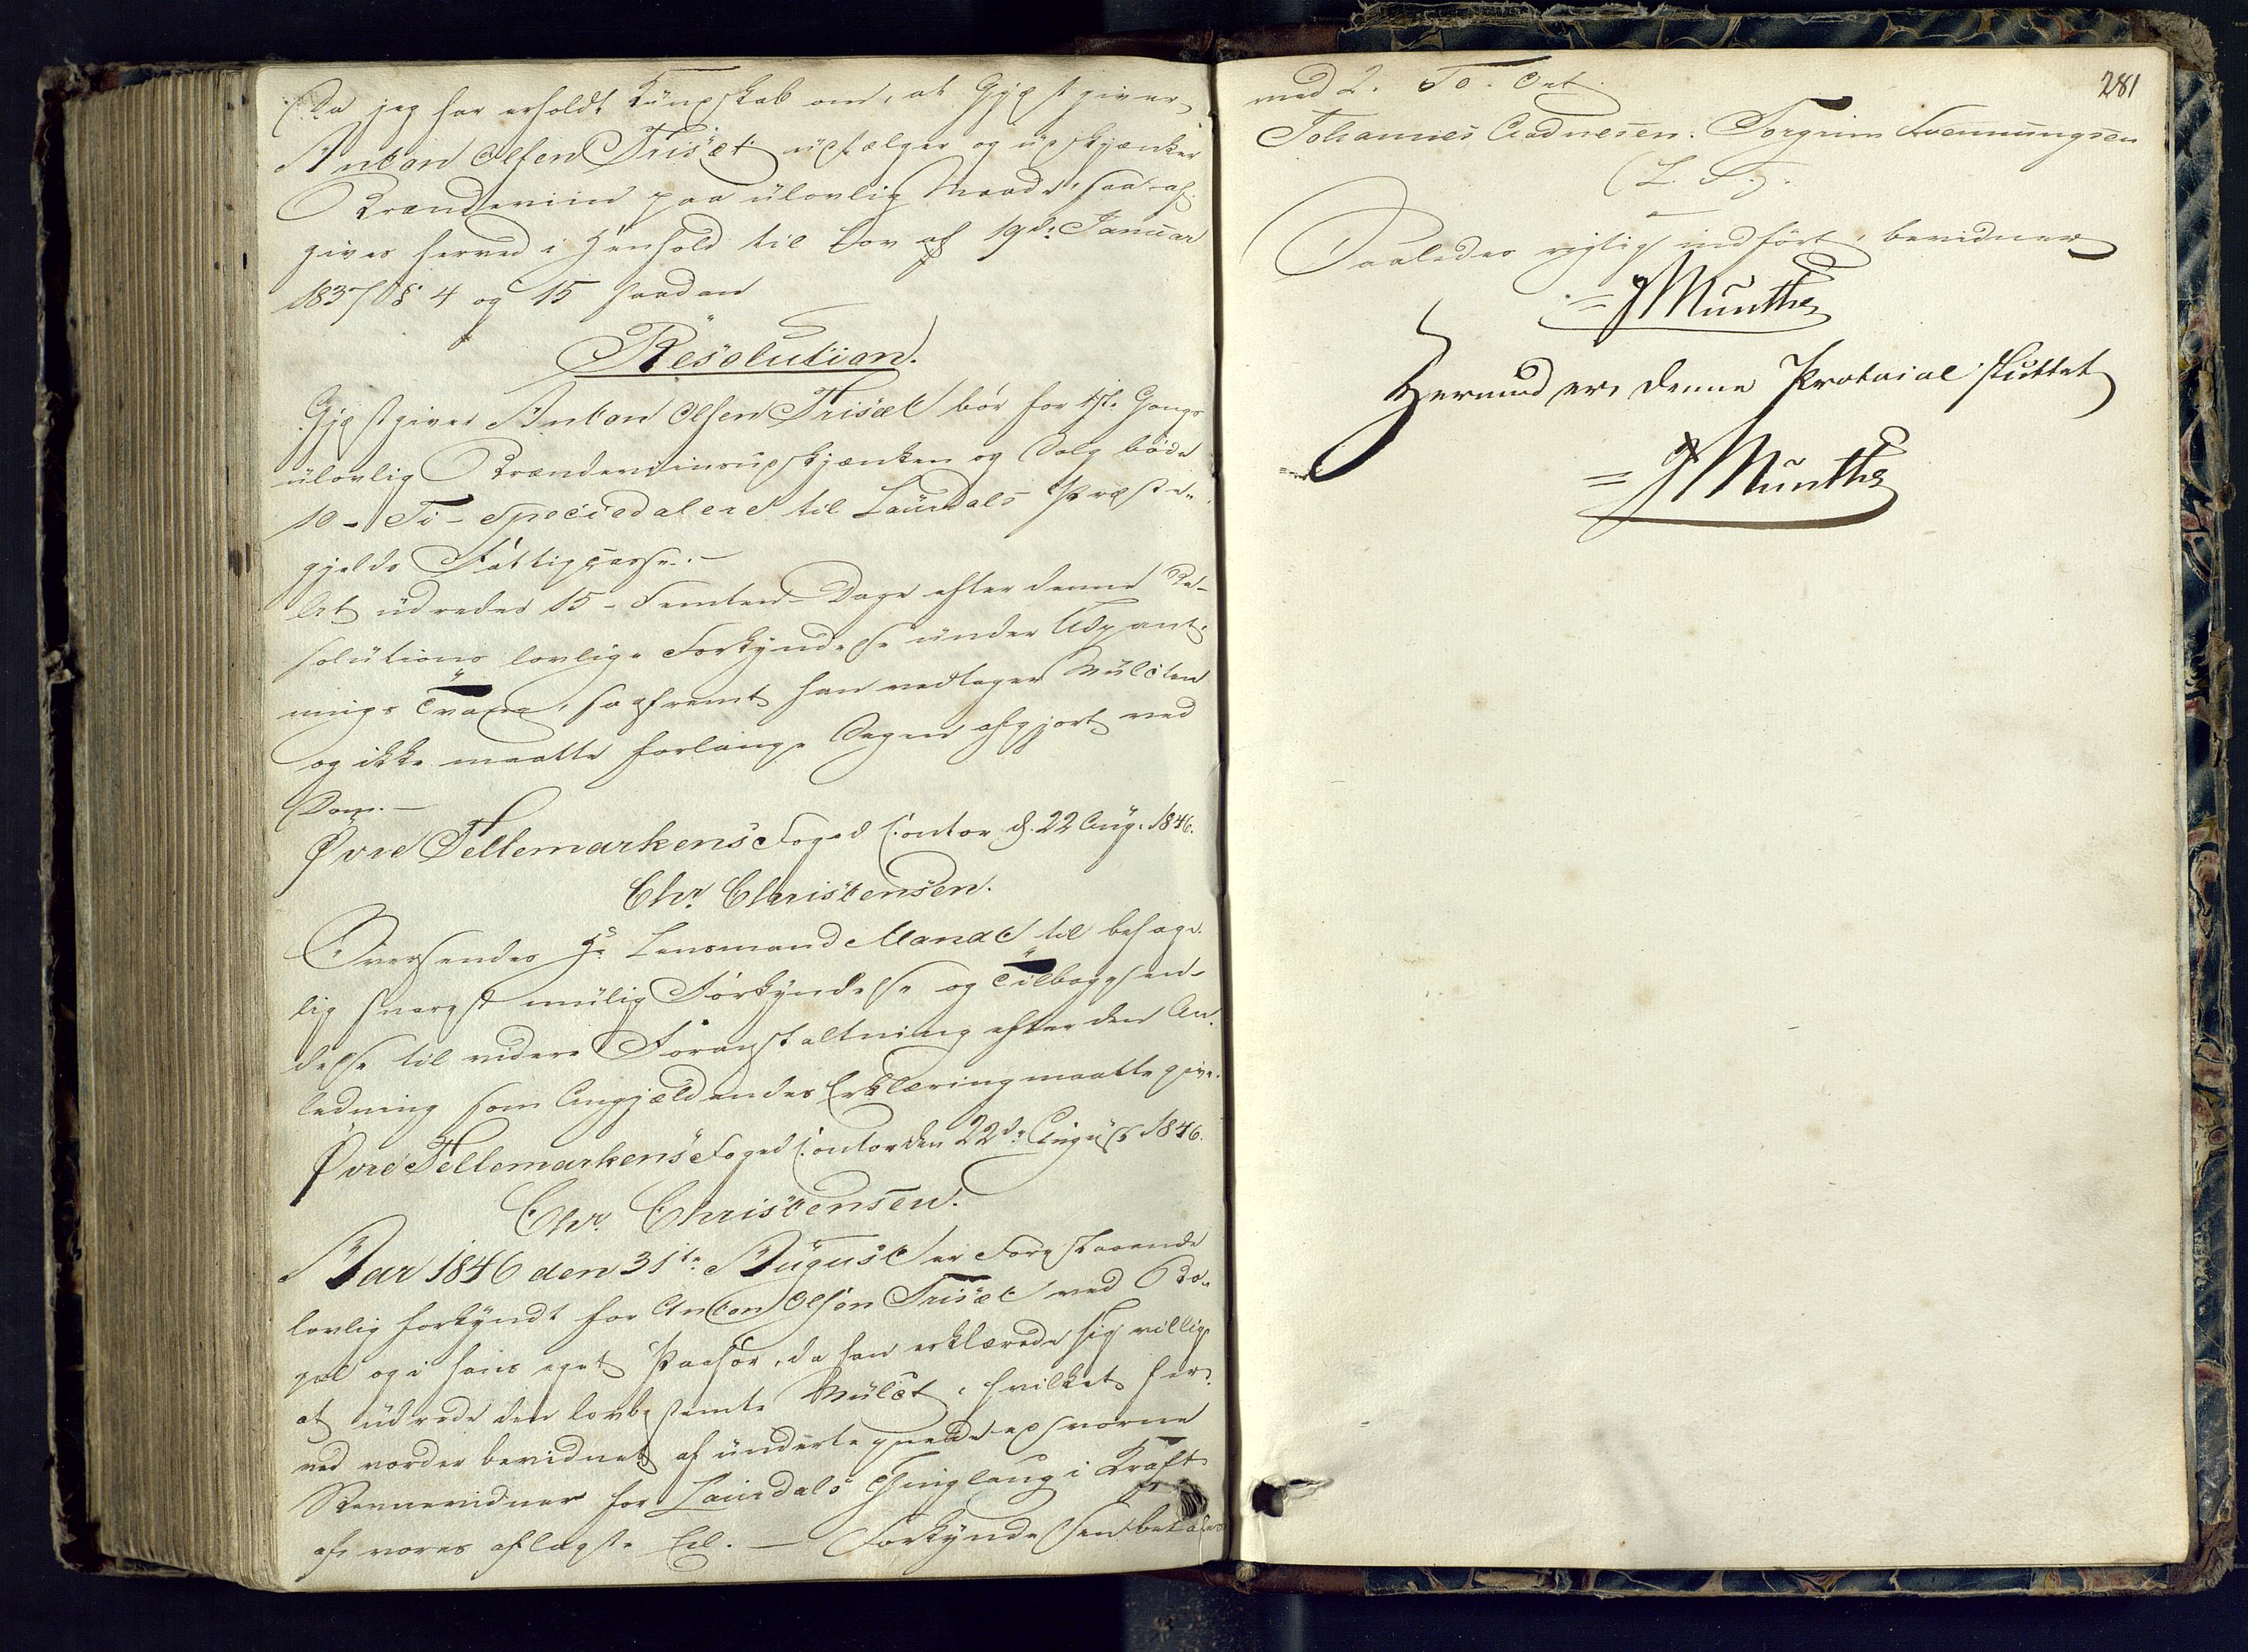 Da jeg har erholdt Kundskab om, at Gjæstgiver
Anton Olsen Trisæt udsælger og udskjænker
Brændeviin paa ulovlig Maade, saa af-
gives herved i Henhold til Lov af 19de Januar
1837 § 4 og 15 saadan
Resolution.
Gjæstgiver Anton Olsen Trisæt bör for 1ste Gangs
ulovlig Brændeviinsudskjænken og Salg böde
10 - Ti - Speciedaler til Laurdals Præste-
gjelds Fattigcasse. -
At udredes 15 - Femten - Dage efter denne Re-
solutions lovlige Forkyndelse under Udpant-
nings Tvang, saafremt han vedtager Mulcten
og ikke maatte forlange Sagen afgjort ved
Dom. -
Øvre Tellemarkens Foged Contor d. 22 Aug. 1846.
Chr. Christensen.
Oversendes Hr Lensmand Mandt til behage-
lig snarest mulig Forkyndelse og Tilbagesen-
delse til videre Foranstaltning efter den An-
ledning som Angjældendes Erklæring maatte give.
Øvre Tellemarkens Foged Contor den 22de August 1846.
Chr. Christensen.
Aar 1846 den 31te August er Forestaaende
lovlig forkyndt for Anton Olsen Trisæt ved Bo-
pæl og i hans eget Paahör, da han erklærede sig villig
at udrede den lovbestemte Mulct, hvilket her-
ved vorder bevidnet af undertegnede edsvorne
Stevnevidner for Laurdals Thinglaug i Kraft
af vores aflagte Ed. - Forkyndelsen betales
281
med 2. To. Ort.
Johannes Aadnesen. Torgrim Svennungsen
(L. S.).
Saaledes rigtig indfört, bevidner
= J Munthe
Hermed er denne Protocol sluttet
= J Munthe